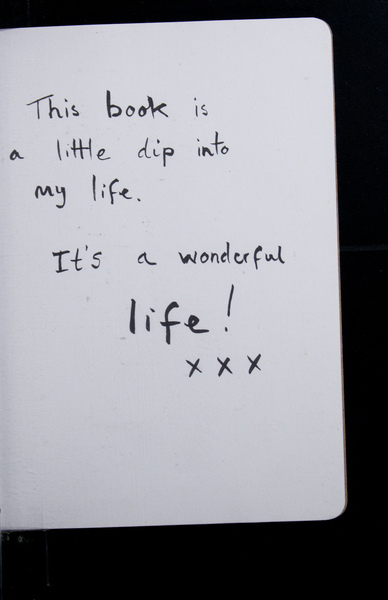 This book is
a little dip into
my life.
It's a wonderful
life!
x x x